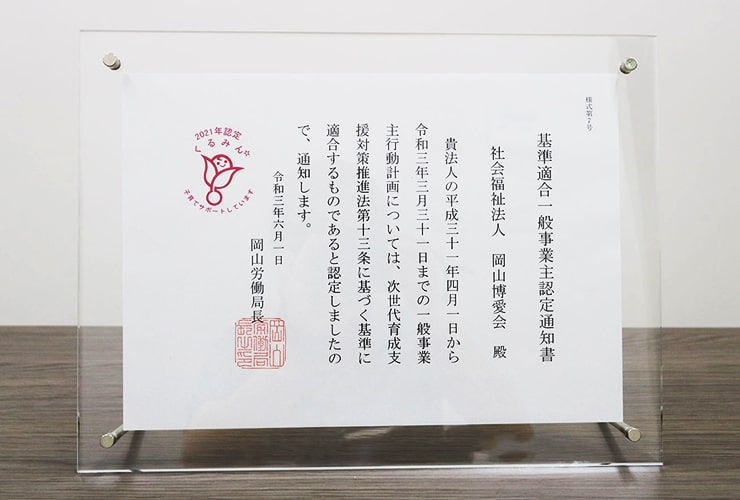 様式第7号
基準適合一般事業主認定通知書
社会福祉法人　岡山博愛会　殿
貴法人の平成三十一年四月一日から
令和三年三月三十一日までの一般事業
主行動計画については、次世代育成支
援対策推進法第十三条に基づく基準に
適合するものであると認定しましたの
で、通知します。
令和三年六月一日
岡山労働局長
岡山
労働局
長之印
2021年認定
くるみん☆
子育てサポートしています